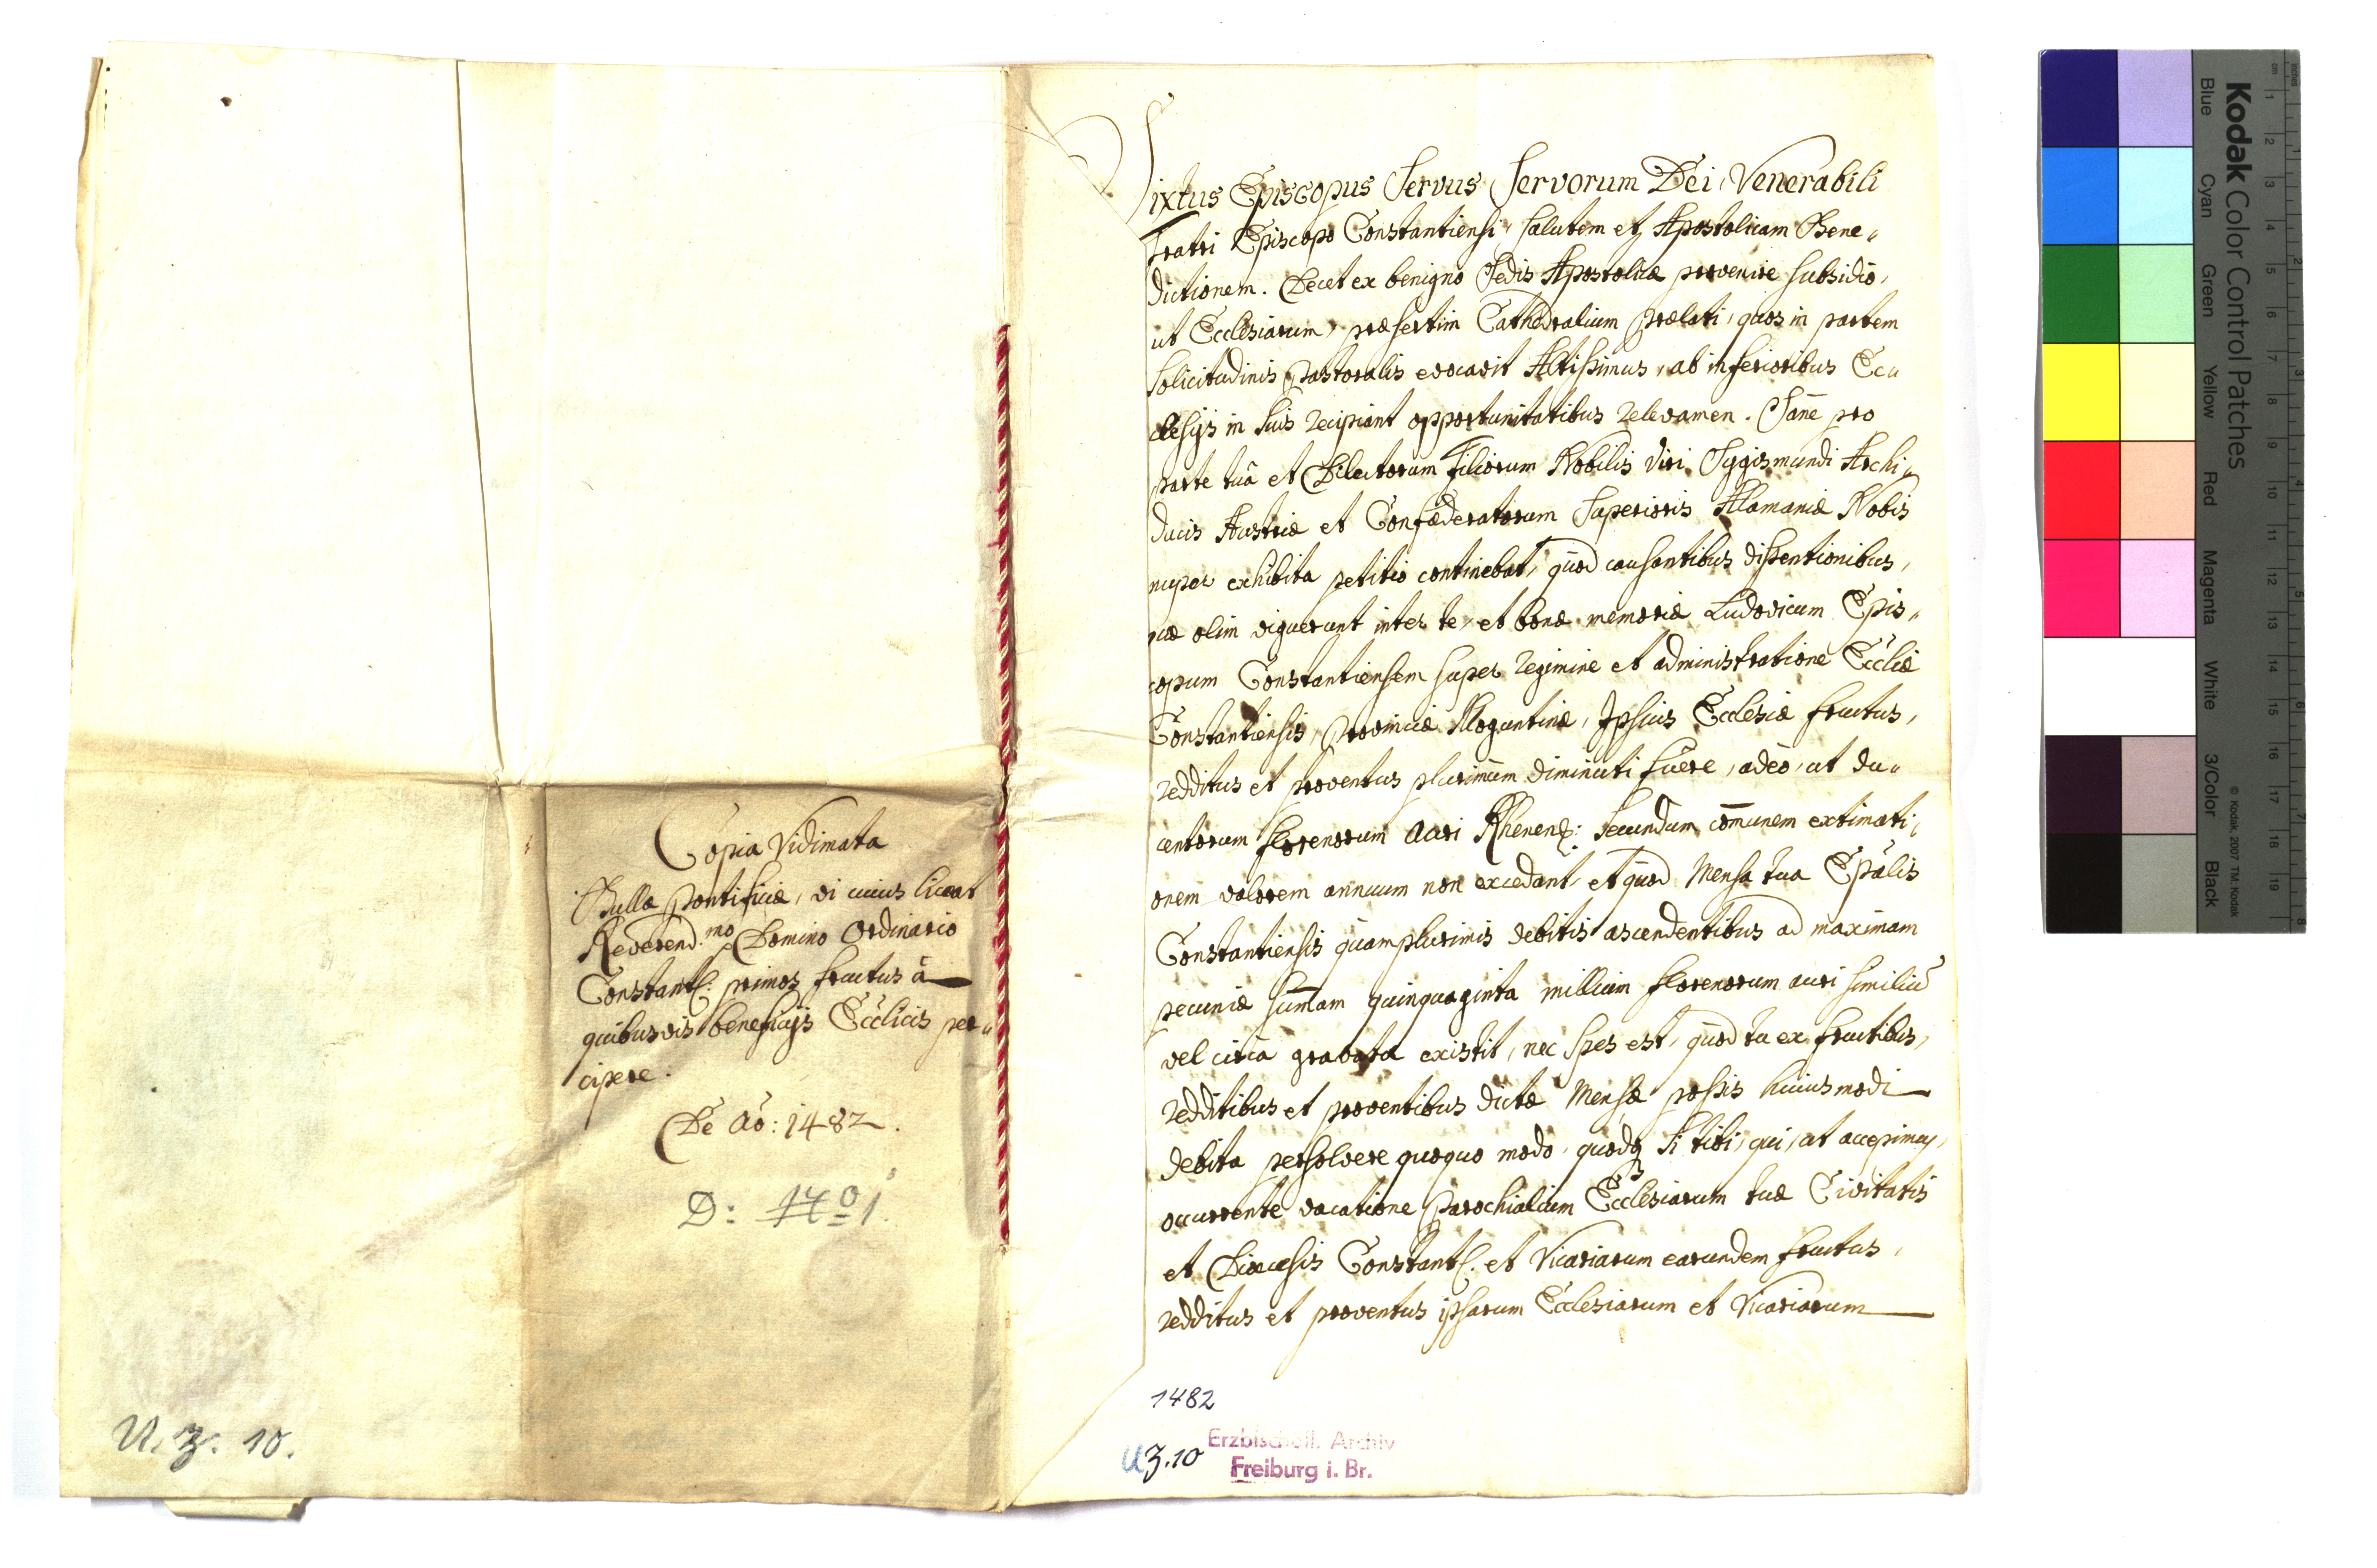 Copia Vidimata
Bullæ Pontificiæ, vi cuius liceat
Reverend.mo Domino Ordinario
Constants: primos fructus â
quibusvis beneficijs Ecclīcis per„
cipere.
De ao: 1482.
D: 1701.
U. 3. 10.
Sixtus Episcopus Servus Servorum Dei, Venerabili
Fratri Episcopo Constantiensi, salutem et Apostolicam Bene„
dictionem. Decet ex benigno Sedis Apostolicæ provenire subsidio,
ut Ecclesiarum, præsertim Cathedralium Prælati, quos in partem
solicitudinis Pastoralis evocavit Altissimus, ab inferioribus Ec„
clesijs in suis recipiant opportunitatibus relevamen. Sanè pro
parte tuâ et Dilectorum Filiorum Nobilis Viri Sygismundi Archi„
ducis Austriæ et Confæderatorum Superioris Alamaniæ Nobis
nuper exhibita petitio continebat, quòd causantibus dissentionibus,
quæ olim viguerunt inter te, et bonæ memoriæ Ludovicum Epis„
copum Constantiensem super regimine et administratione Eccliæ
Constantiensis, Provinciæ Moguntinæ, Ipsius Ecclesiæ fructus,
redditus et proventus plurimùm diminuti fuère, adeò, ut du„
centorum florenorum auri Rhenens: secundum com̄unem extimati„
onem valorem annuum non excedant, et quòd Mensa tua Epālis
Constantiensis quamplurimis debitis ascendentibus ad maximam
pecuniæ sum̄am quinquaginta millium florenorum auri similiū
vel circa gravata existit, nec spes est, quòd tu ex fructibus,
redditibus et proventibus dictæ Mensæ possis huiusmodi
debita persolvere quoquo modo, quodq si tibi, qui, ut accepimus,
occurrente vacatione Parochialium Ecclesiarum tuæ Civitatis
et Diæcesis Constants. et Vicariarum earundem fructus,
redditus et proventus ipsarum Ecclesiarum et Vicariarum
1482
U 3.10
Erzbischöfl. Archiv
Freiburg i. Br.
Kodak Color Control Patches
Blue Cyan Green Yellow Red Magenta White 3/Color Black
© Kodak, 2007 TM: Kodak
cm 1 2 3 4 5 6 7 8 9 10 11 12 13 14 15 16 17 18 19
inches 1 2 3 4 5 6 7 8